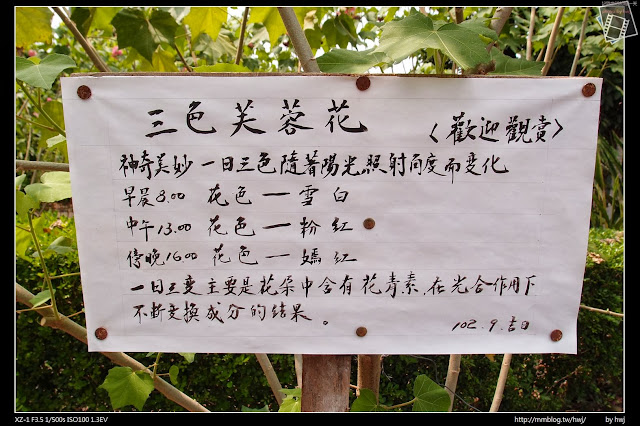 三色芙蓉花
〈歡迎觀賞〉
神奇美妙一日三色隨著陽光照射角度而變化
早晨8.00 花色一雪白
中午13.00 花色一粉紅
傍晚16.00 花色一嫣紅
一日三變主要是花朵中含有花青素.在光合作用下
不斷变換成分的結果。
102.9.吉日
XZ-1 F3.5 1/500s ISO100 1.3EV
http://mmblog.tw/hwj/
by hwj